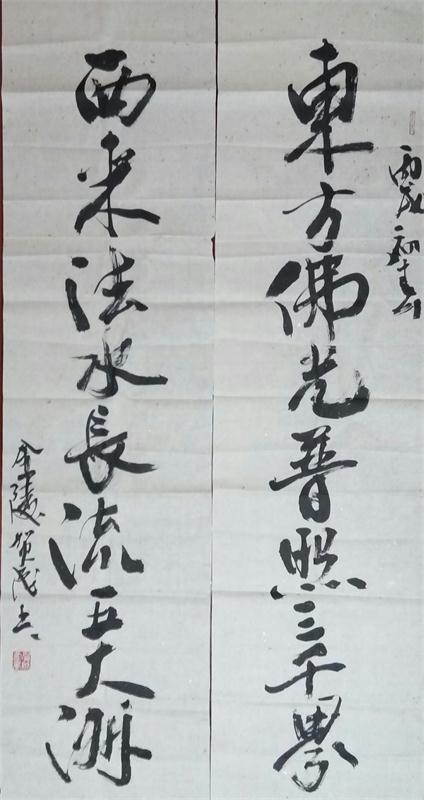 丙戌
東方佛光普照三千界
西来法水長流五大洲
金陵贺